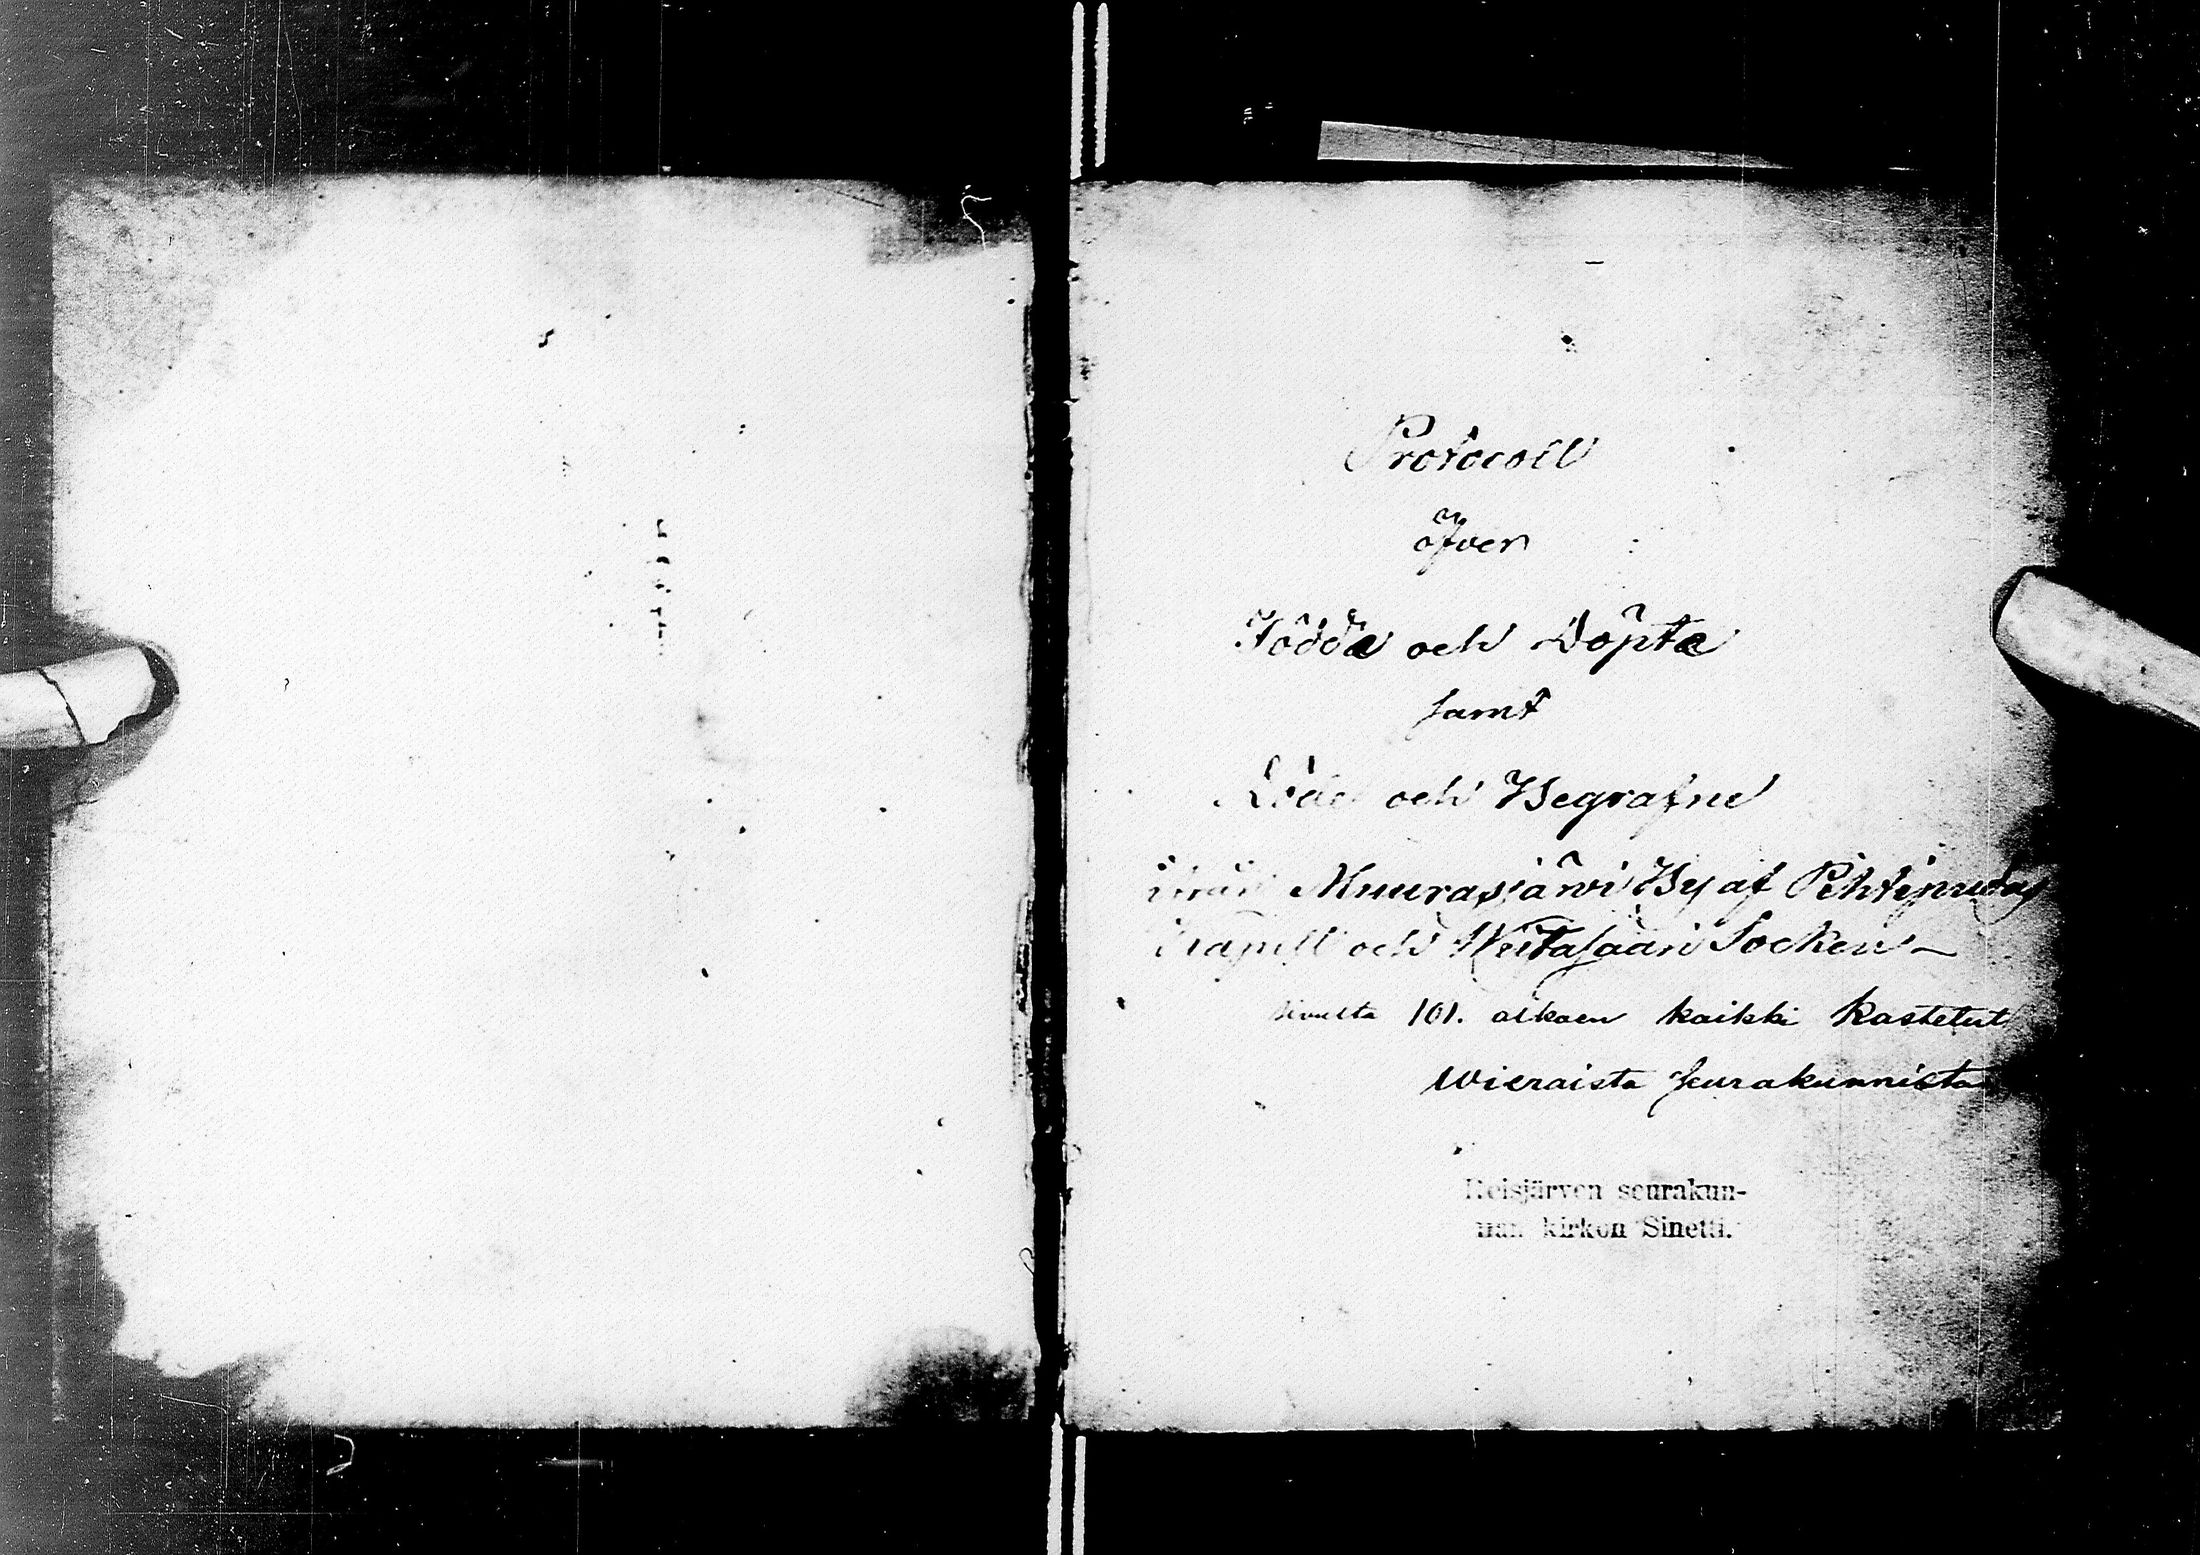 Protocoll
öfver
Födda och Döpta
samt
Döde och Begrafne
ifrån Muurasjärvi By af Pihtipudas
Capell och Witasaari Socken –
sivulta 101. alkaen kaikki kastetut
wieraista seurakunnista
Reisjärven seurakun-
nan kirkon Sinetti.